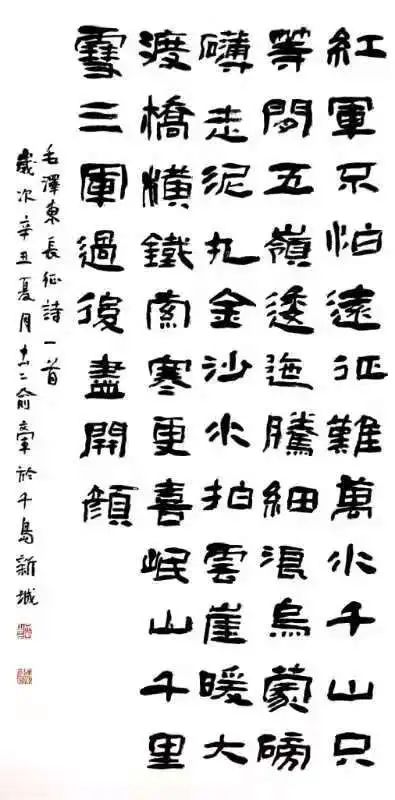 紅軍不怕遠征難萬水千山只
等閒五嶺逶迤騰細浪烏蒙磅
礴走泥丸金沙水拍雲崖暖大
渡橋橫鐵索寒更喜岷山千里
雪三軍過後盡開顏
毛澤東長征詩一首
歲次辛丑夏月二俞於千島新城